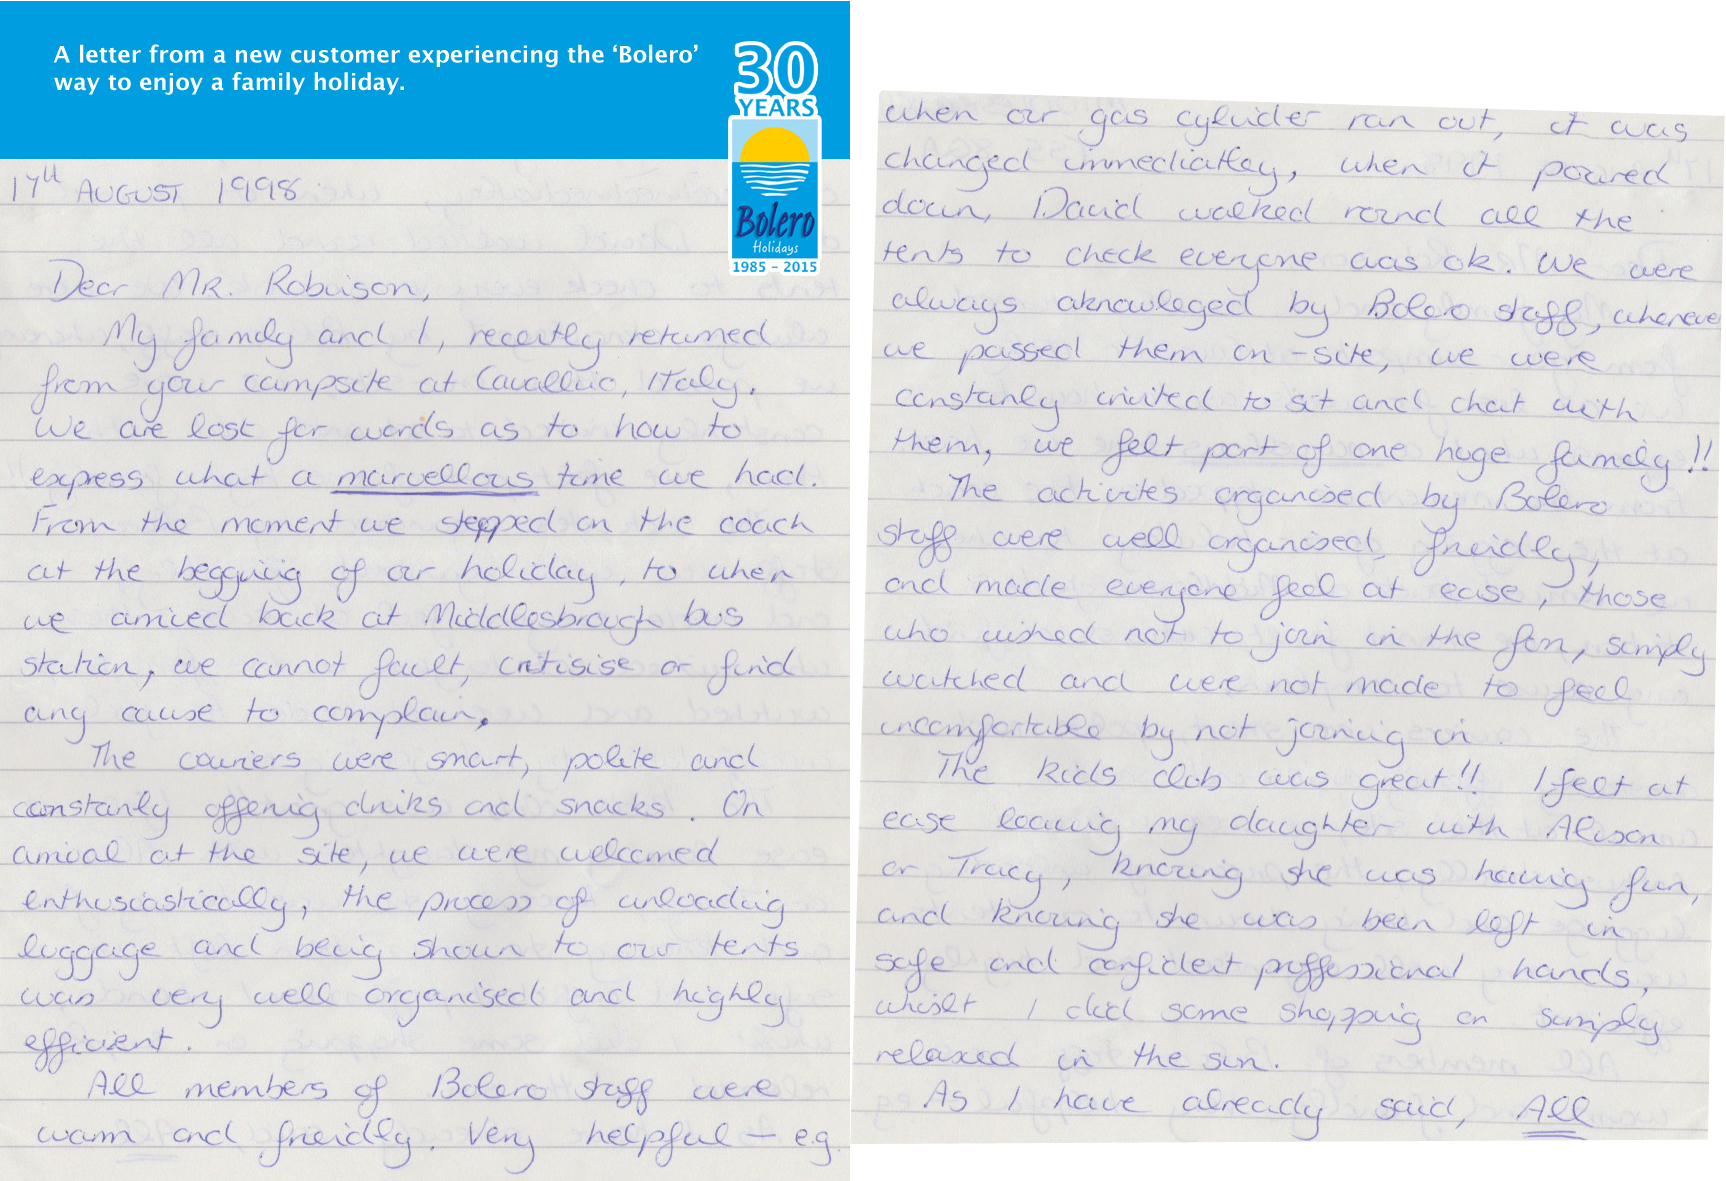 A letter from a new customer experiencing the ‘Bolero’
way to enjoy a family holiday.
30
YEARS
Bolero
Holidays
1985 – 2015
17th AUGUST 1998
Dear MR. Robinson,
My family and I, recently returned
from your campsite at Cavallino, Italy.
We are lost for words as to how to
express what a marvellous time we had.
From the moment we stepped on the coach
at the beggining of our holiday, to when
we arrived back at Middlesbrough bus
station, we cannot fault, critisise or find
any cause to complain.
The couriers were smart, polite and
constanly offering drinks and snacks. On
arrival at the site, we were welcomed
enthusiastically, the process of unloading
luggage and being shown to our tents
was very well organised and highly
efficient.
All members of Bolero staff were
warm and freindly. Very helpful – e.g.
when our gas cylinder ran out, it was
changed immediatley, when it poured
down, David walked round all the
tents to check everyone was ok. We were
always aknowleged by Bolero staff, whenever
we passed them on-site, we were
constanly invited to sit and chat with
them, we felt part of one huge family!!
The activites organised by Bolero
staff were well organised, freindly,
and made everyone feel at ease, those
who wished not to join in the fun, simply
watched and were not made to feel
uncomfortable by not joining in.
The kids club was great!! I felt at
ease leaving my daughter with Alison
or Tracy, knowing she was having fun,
and knowing she was been left in
safe and confident proffessional hands,
whilst I did some shopping or simply
relaxed in the sun.
As I have already said, All